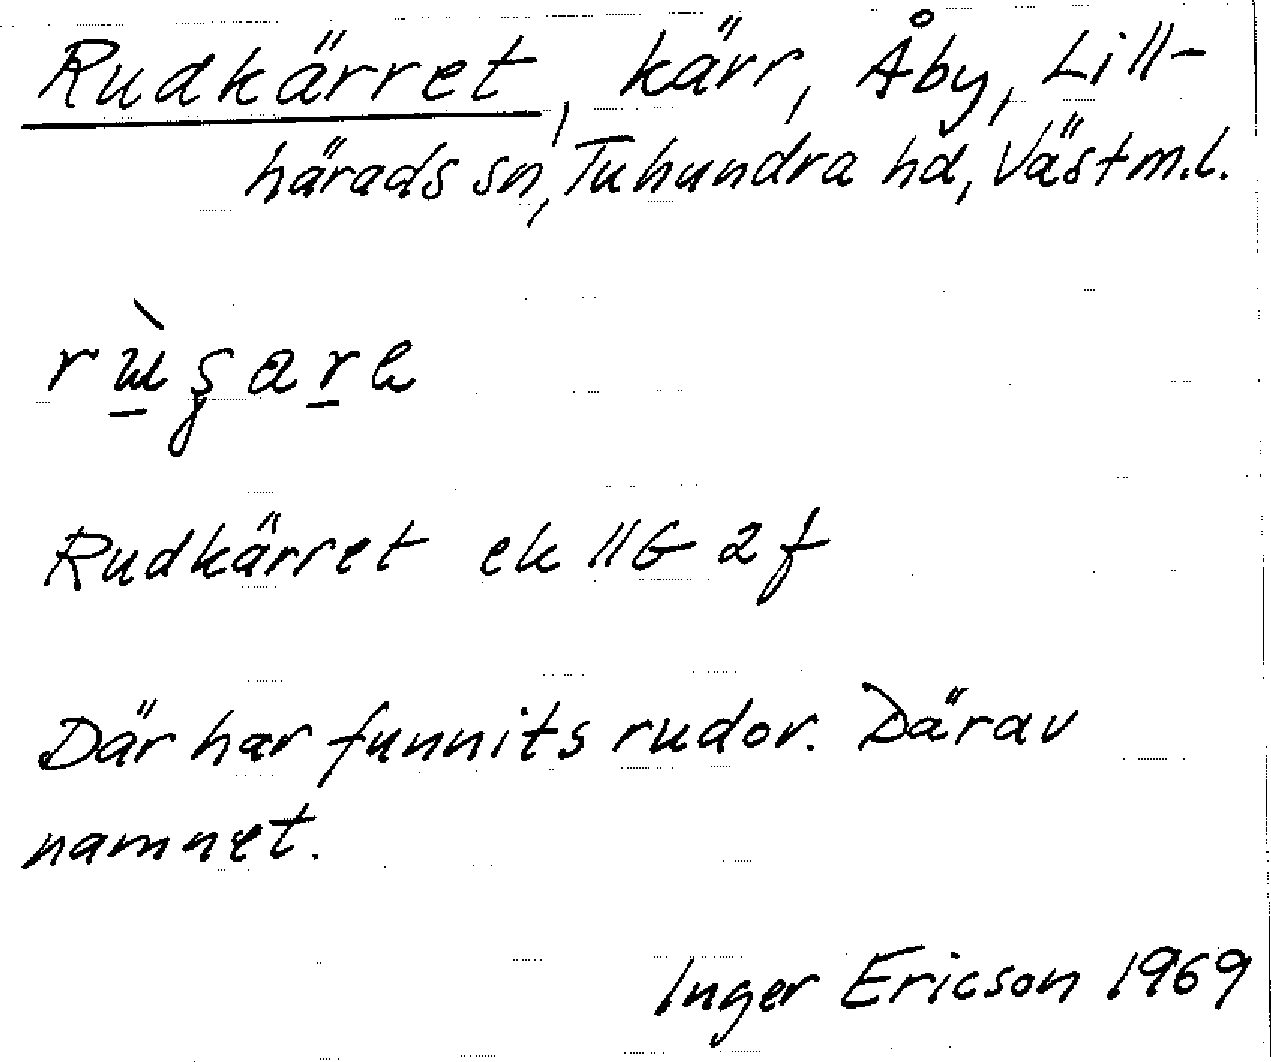 Rudkärret, kärr, Åby, Lill-
härads sn, Tuhundra hd, Västm.l.
Rudkärret ek 11G 2f
Där har funnits rudor. Därav
namnet.
Inger Ericson 1969